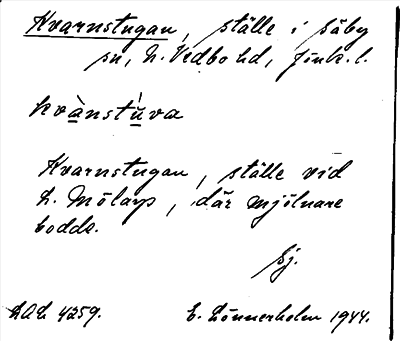 Kvarnstugan, ställe i Säby
sn, N. Vedbo hd, Jönk. l.
kvànstùva
Kvarnstugan, ställe vid
L. Mölarp, där mjölnare
bodde.
Sj.
LAL 4259. E. Lönnerholm 1944.